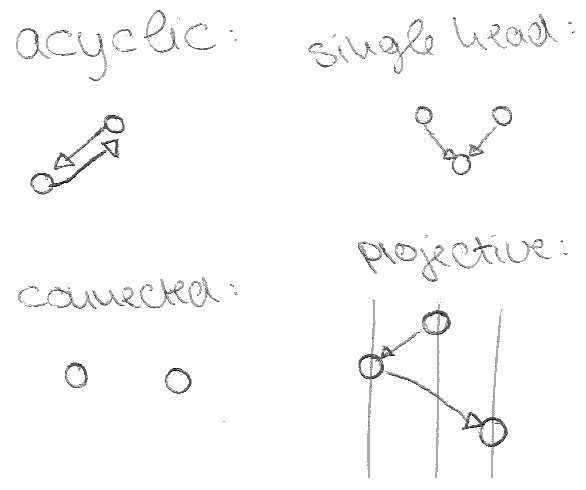 acyclic:
single head:
connected:
projective: